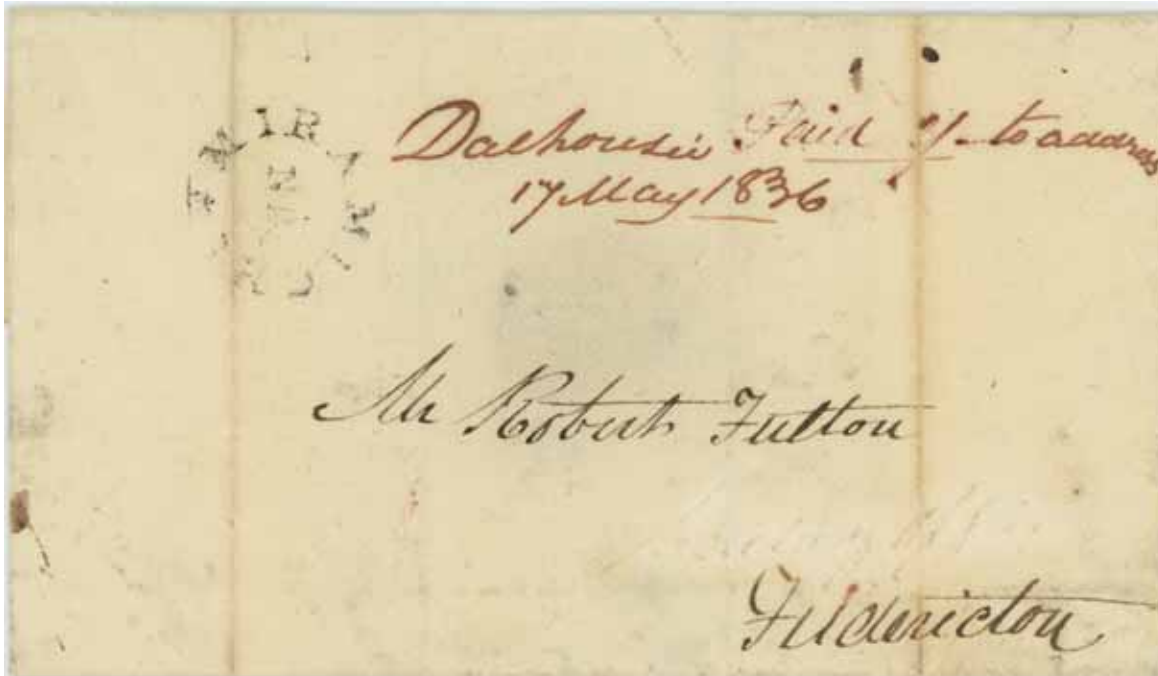 MIRAMICHI
Dalhousie Paid 9/- to address
17 May 1836
Mr Robert Fulton
Fredericton